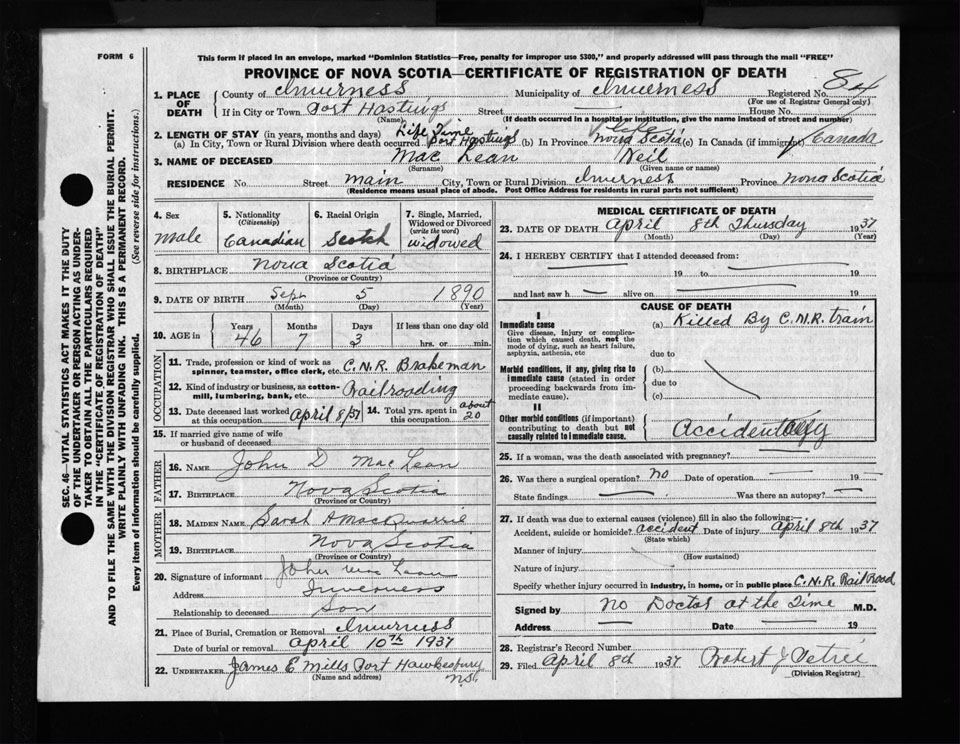 FORM 6
This form if placed in an envelope, marked "Dominion Statistics—Free, penalty for improper use $300," and properly addressed will pass through the mail "FREE"
PROVINCE OF NOVA SCOTIA—CERTIFICATE OF REGISTRATION OF DEATH
84
1. PLACE OF DEATH
County of Inverness Municipality of Inverness Registered No.
(For use of Registrar General only)
If in City or Town Port Hastings Street — House No.
(Name) (If death occurred in a hospital or institution, give the name instead of street and number)
2. LENGTH OF STAY (in years, months and days) Life Time Life
(a) In City, Town or Rural Division where death occurred Port Hastings (b) In Province Nova Scotia (c) In Canada (if immigrant) Canada
3. NAME OF DECEASED Mac Lean Neil
(Surname) (Given name or names)
RESIDENCE No. Street main City, Town or Rural Division Inverness Province Nova Scotia
(Residence means usual place of abode. Post Office Address for residents in rural parts not sufficient)
4. Sex
male
5. Nationality
(Citizenship)
Canadian
6. Racial Origin
Scotch
7. Single, Married, Widowed or Divorced
(write the word)
widowed
8. BIRTHPLACE Nova Scotia
(Province or Country)
9. DATE OF BIRTH Sept 5 1890
(Month) (Day) (Year)
10. AGE in Years Months Days If less than one day old
46 7 3 hrs. or min.
OCCUPATION
11. Trade, profession or kind of work as spinner, teamster, office clerk, etc. C.N.R. Brakeman
12. Kind of industry or business, as cotton-mill, lumbering, bank, etc. Railroading
13. Date deceased last worked at this occupation April 8/37 14. Total yrs. spent in this occupation about 20
15. If married give name of wife or husband of deceased
FATHER
16. NAME John D Mac Lean
17. BIRTHPLACE Nova Scotia
(Province or Country)
MOTHER
18. MAIDEN NAME Sarah A MacQuarrie
19. BIRTHPLACE Nova Scotia
(Province or Country)
20. Signature of informant John Mac Lean
Address Inverness
Relationship to deceased Son
21. Place of Burial, Cremation or Removal Inverness
Date of burial or removal April 10th 1937
22. UNDERTAKER James E Mills Port Hawkesbury
(Name and address) N.S.
MEDICAL CERTIFICATE OF DEATH
23. DATE OF DEATH April 8th Thursday 1937
(Month) (Day) (Year)
24. I HEREBY CERTIFY that I attended deceased from:
19 to 19
and last saw h alive on 19
CAUSE OF DEATH
I
Immediate cause (a) Killed By C.N.R. train
Give disease, injury or complication which caused death, not the mode of dying, such as heart failure, asphyxia, asthenia, etc
due to
Morbid conditions, if any, giving rise to immediate cause (stated in order proceeding backwards from immediate cause).
(b)
due to
(c)
II
Other morbid conditions (if important) contributing to death but not causally related to immediate cause.
Accidentally
25. If a woman, was the death associated with pregnancy?
26. Was there a surgical operation? No Date of operation 19
State findings Was there an autopsy?
27. If death was due to external causes (violence) fill in also the following:—
Accident, suicide or homicide? accident Date of injury April 8th 1937
(State which)
Manner of injury
(How sustained)
Nature of injury
Specify whether injury occurred in industry, in home, or in public place C.N.R. Railroad
Signed by No Doctor at the Time M.D.
Address Date 19
28. Registrar's Record Number
29. Filed April 8th 1937 Robert J Petrie
(Division Registrar)
SEC. 46—VITAL STATISTICS ACT MAKES IT THE DUTY
OF THE UNDERTAKER OR PERSON ACTING AS UNDER-
TAKER TO OBTAIN ALL THE PARTICULARS REQUIRED
IN THE "CERTIFICATE OF REGISTRATION OF DEATH"
AND TO FILE THE SAME WITH THE DIVISION REGISTRAR WHO SHALL ISSUE THE BURIAL PERMIT.
WRITE PLAINLY WITH UNFADING INK. THIS IS A PERMANENT RECORD.
Every item of information should be carefully supplied. (See reverse side for instructions.)